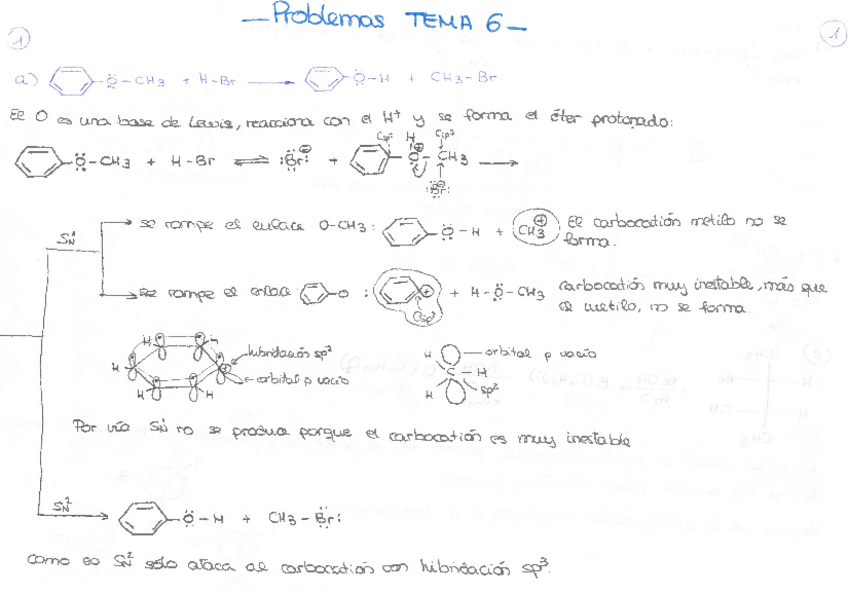 Problemas TEMA 6
1
1
a) -Ö-CH3 + H-Br → -Ö-H + CH3-Br
El O es una base de Lewis, reacciona con el H+ y se forma el éter protonado:
Csp2 H Csp3
-Ö-CH3 + H-Br ⇌ :Br:⊖ + -O⊕-CH3 →
:Br:⊖
SN1
se rompe el enlace O-CH3: -Ö-H + CH3⊕ El carbocatión metilo no se
forma.
se rompe el enlace -O : ⊕ + H-Ö-CH3 carbocatión muy inestable, más que
Csp2 el metilo, no se forma
hibridación sp2
orbital p vacío
H H H H H
orbital p vacío
H C-H
H sp2
Por vía SN1 no se produce porque el carbocatión es muy inestable
SN2
-Ö-H + CH3-Br:
como es SN2 sólo ataca al carbocatión con hibridación sp3.